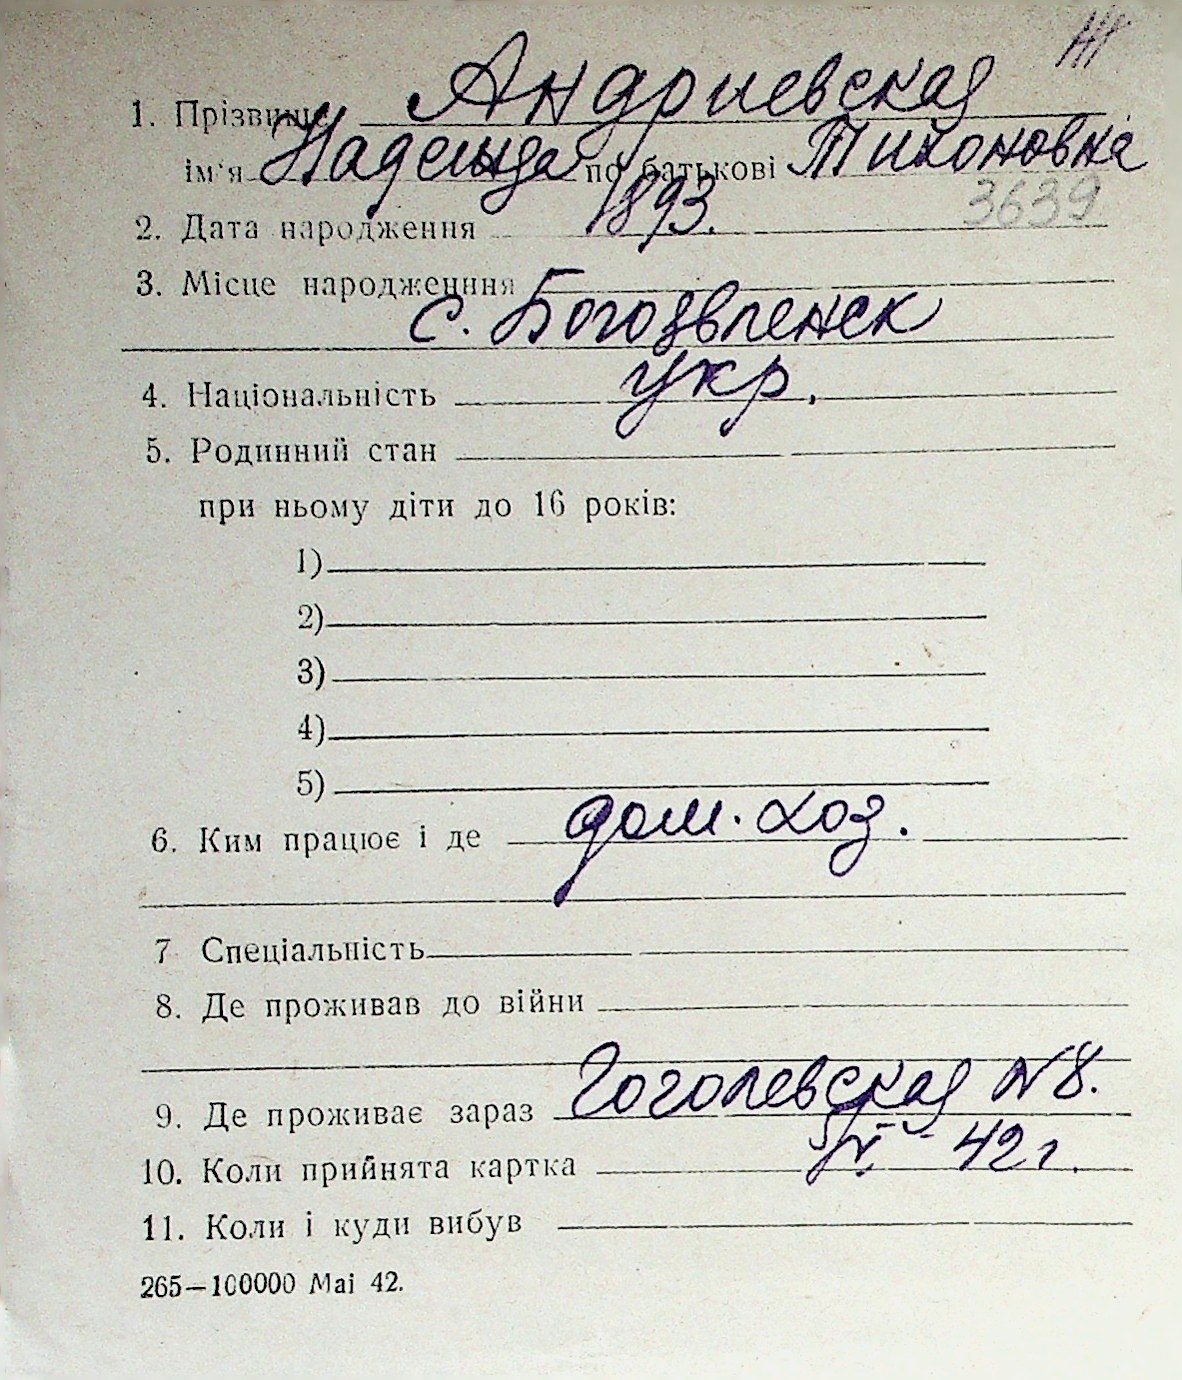 Ж
1. Прізвище Андриевская
ім'я Надежда по батькові Тихоновна
3639
2. Дата народження 1893.
3. Місце народженння
с. Богоявленск
4. Національність укр.
5. Родинний стан
при ньому діти до 16 років:
1)
2)
3)
4)
5)
6. Ким працює і де дом. хоз.
7 Спеціальність
8. Де проживав до війни
9. Де проживає зараз Гоголевская N8.
10. Коли прийнята картка - 42 г.
11. Коли і куди вибув
265—100000 Mai 42.